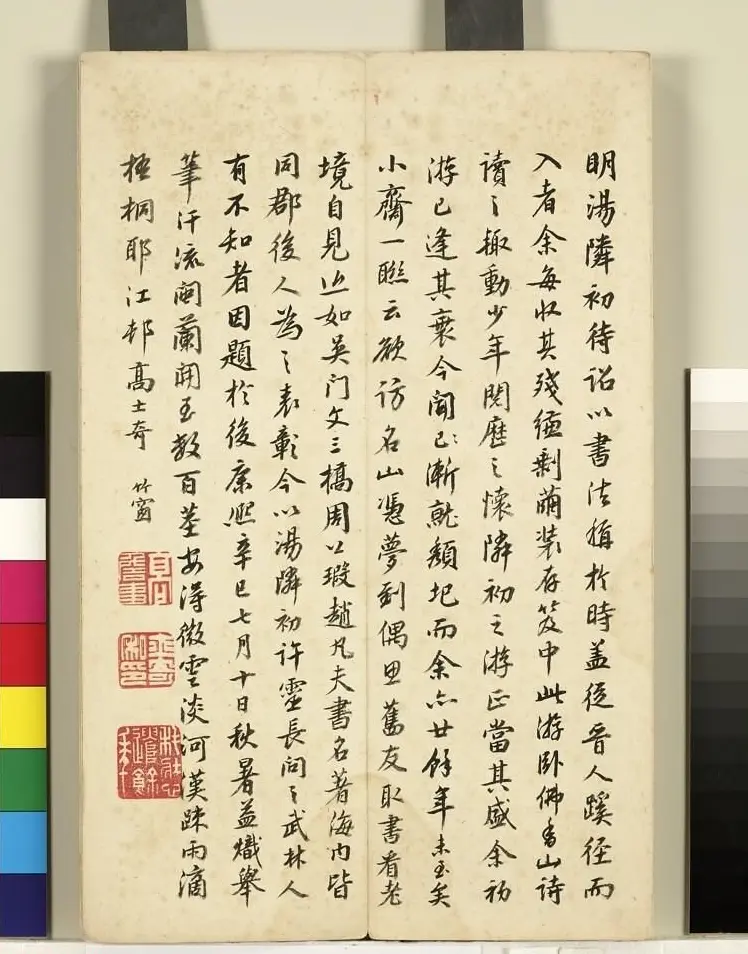 明湯隣初待詔以書法稱於時蓋從晉人蹊徑而
入者余每收其殘縑剩繭裝存笈中此游卧佛香山詩
讀之趣動少年閱歷之懷隣初之游正當其盛余初
游已逢其衰今聞已漸就頹圮而余亦廿餘年未至矣
小齋一聯云欲訪名山憑夢到偶思舊友取書看老
境自見止如吳门文三橋周公瑕趙凡夫書名著海内皆
同郡後人為之表彰今以湯隣初許靈長問之武林人
有不知者因題於後康熙辛巳七月十日秋暑益熾舉
筆汗流闽蘭開至數百莖安得微雲淡河漢踈雨滴
梧桐耶江邨高士奇
竹窗